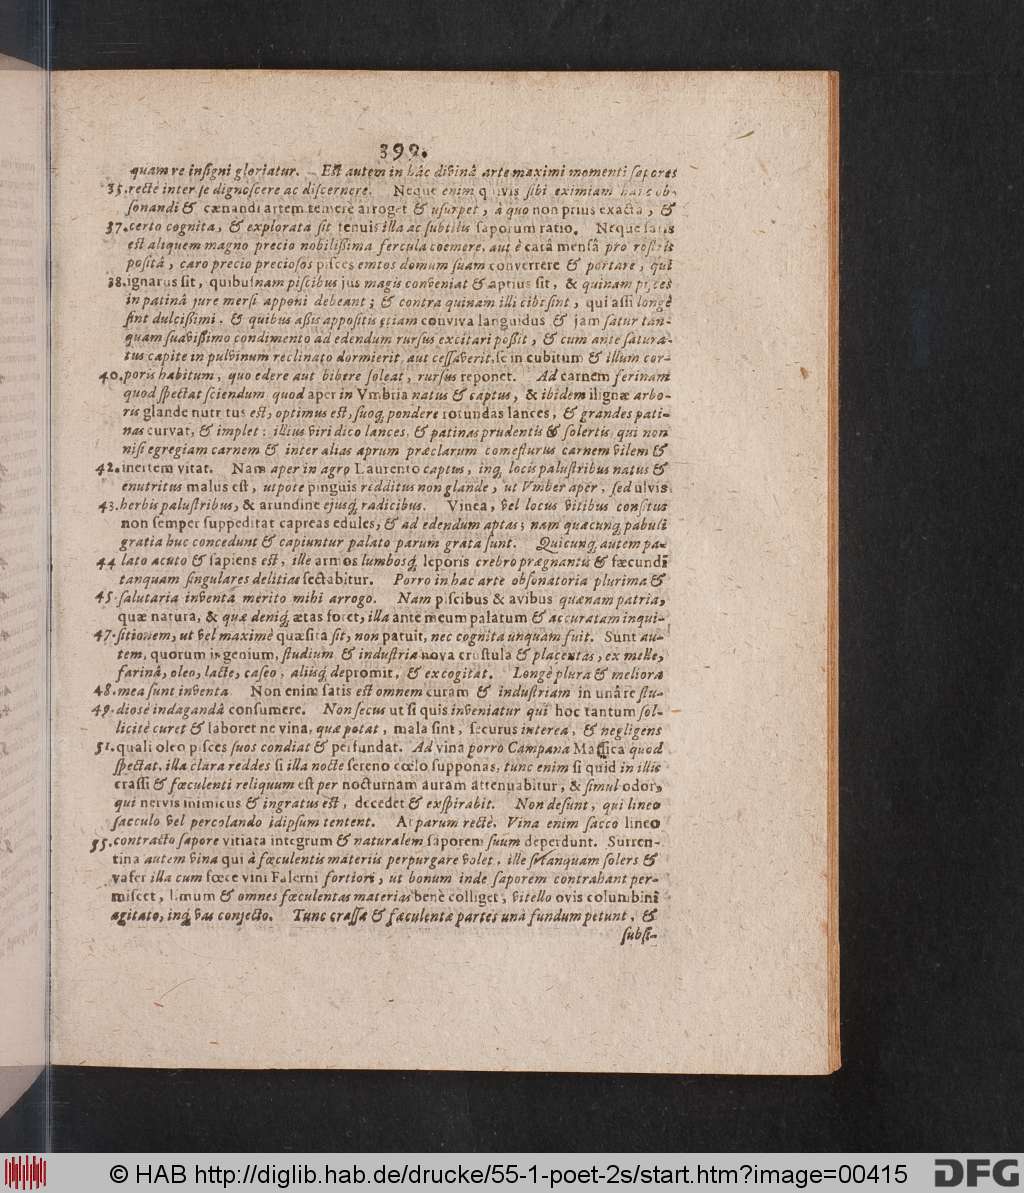 399.
quam re insigni gloriatur. Est autem in hâc divinâ arte maximi momenti sapores
35. rectè inter se dignoscere ac discernere. Neque enim quivis sibi eximiam hanc ob-
sonandi & cænandi artem temerè arroget & usurpet, à quo non priùs exacta, &
37. certo cognita, & explorata sit tenuis illa ac subtilis saporum ratio. Neque satis
est aliquem magno precio nobilißima fercula coemere, aut è carâ mensâ pro rostris
positâ, caro precio preciosos pisces emtos domum suam converrere & portare, qui
38. ignarus sit, quibusnam piscibus jus magis conveniat & aptius sit, & quinam pisces
in patinâ jure mersi apponi debeant; & contra quinam illi cibi sint, qui assi longè
sint dulcißimi. & quibus aßis appositis etiam conviva languidus & jam satur tan-
quam suavißimo condimento ad edendum rursus excitari poßit, & cum ante satura-
tus capite in pulvinum reclinato dormierit, aut cessaverit, se in cubitum & illum cor-
40. poris habitum, quo edere aut bibere soleat, rursus reponet. Ad carnem ferinam
quod spectat sciendum quod aper in Vmbria natus & captus, & ibidem ilignæ arbo-
ris glande nutritus est, optimus est, suoq; pondere rotundas lances, & grandes pati-
nas curvat, & implet: illius viri dico lances, & patinas prudentis & solertis, qui non
nisi egregiam carnem & inter alias aprum præclarum comesturus carnem vilem &
42. inertem vitat. Nam aper in agro Laurento captus, inq; locis palustribus natus &
enutritus malus est, utpote pinguis redditus non glande, ut Vmber aper, sed ulvis
43. herbis palustribus, & arundine ejusq; radicibus. Vinea, vel locus vitibus consitus
non semper suppeditat capreas edules, & ad edendum aptas; nam quæcunq; pabuli
gratia huc concedunt & capiuntur palato parum grata sunt. Quicunq; autem pa-
44 lato acuto & sapiens est, ille armos lumbosq; leporis crebro prægnantis & fæcundi
tanquam singulares delitias sectabitur. Porro in hac arte obsonatoria plurima &
45. salutaria inventa merito mihi arrogo. Nam piscibus & avibus quænam patria,
quæ natura, & quæ deniq; ætas foret, illa ante meum palatum & accuratam inqui-
47. sitionem, ut vel maximè quæsita sit, non patuit, nec cognita unquam fuit. Sunt au-
tem, quorum ingenium, studium & industria nova crustula & placentas, ex melle,
farinâ, oleo, lacte, caseo, aliisq; depromit, & excogitat. Longè plura & meliora
48. mea sunt inventa. Non enim satis est omnem curam & industriam in unâ re stu-
49. diosè indagandâ consumere. Non secus ut si quis inveniatur qui hoc tantum sol-
licitè curet & laboret ne vina, quæ potat, mala sint, securus interea, & negligens
51. quali oleo pisces suos condiat & perfundat. Ad vina porro Campana Massica quod
spectat, illa clara reddes si illa nocte sereno cœlo supponas, tunc enim si quid in illis
crassi & fœculenti reliquum est per nocturnam auram attenuabitur, & simul odor,
qui nervis inimicus & ingratus est, decedet & exspirabit. Non desunt, qui lineo
sacculo vel percolando idipsum tentent. At parum rectè. Vina enim sacco lineo
55. contracto sapore vitiata integrum & naturalem saporem suum deperdunt. Surren-
tina autem vina qui à fœculentis materiis perpurgare volet, ille tanquam solers &
vafer illa cum fœce vini Falerni fortiori, ut bonum inde saporem contrahant per-
miscet, limum & omnes fœculentas materias benè colliget, vitello ovis columbini
agitato, inq; vas conjecto. Tunc crassæ & fæculentæ partes unà fundum petunt, &
subsi-
© HAB http://diglib.hab.de/drucke/55-1-poet-2s/start.htm?image=00415
DFG